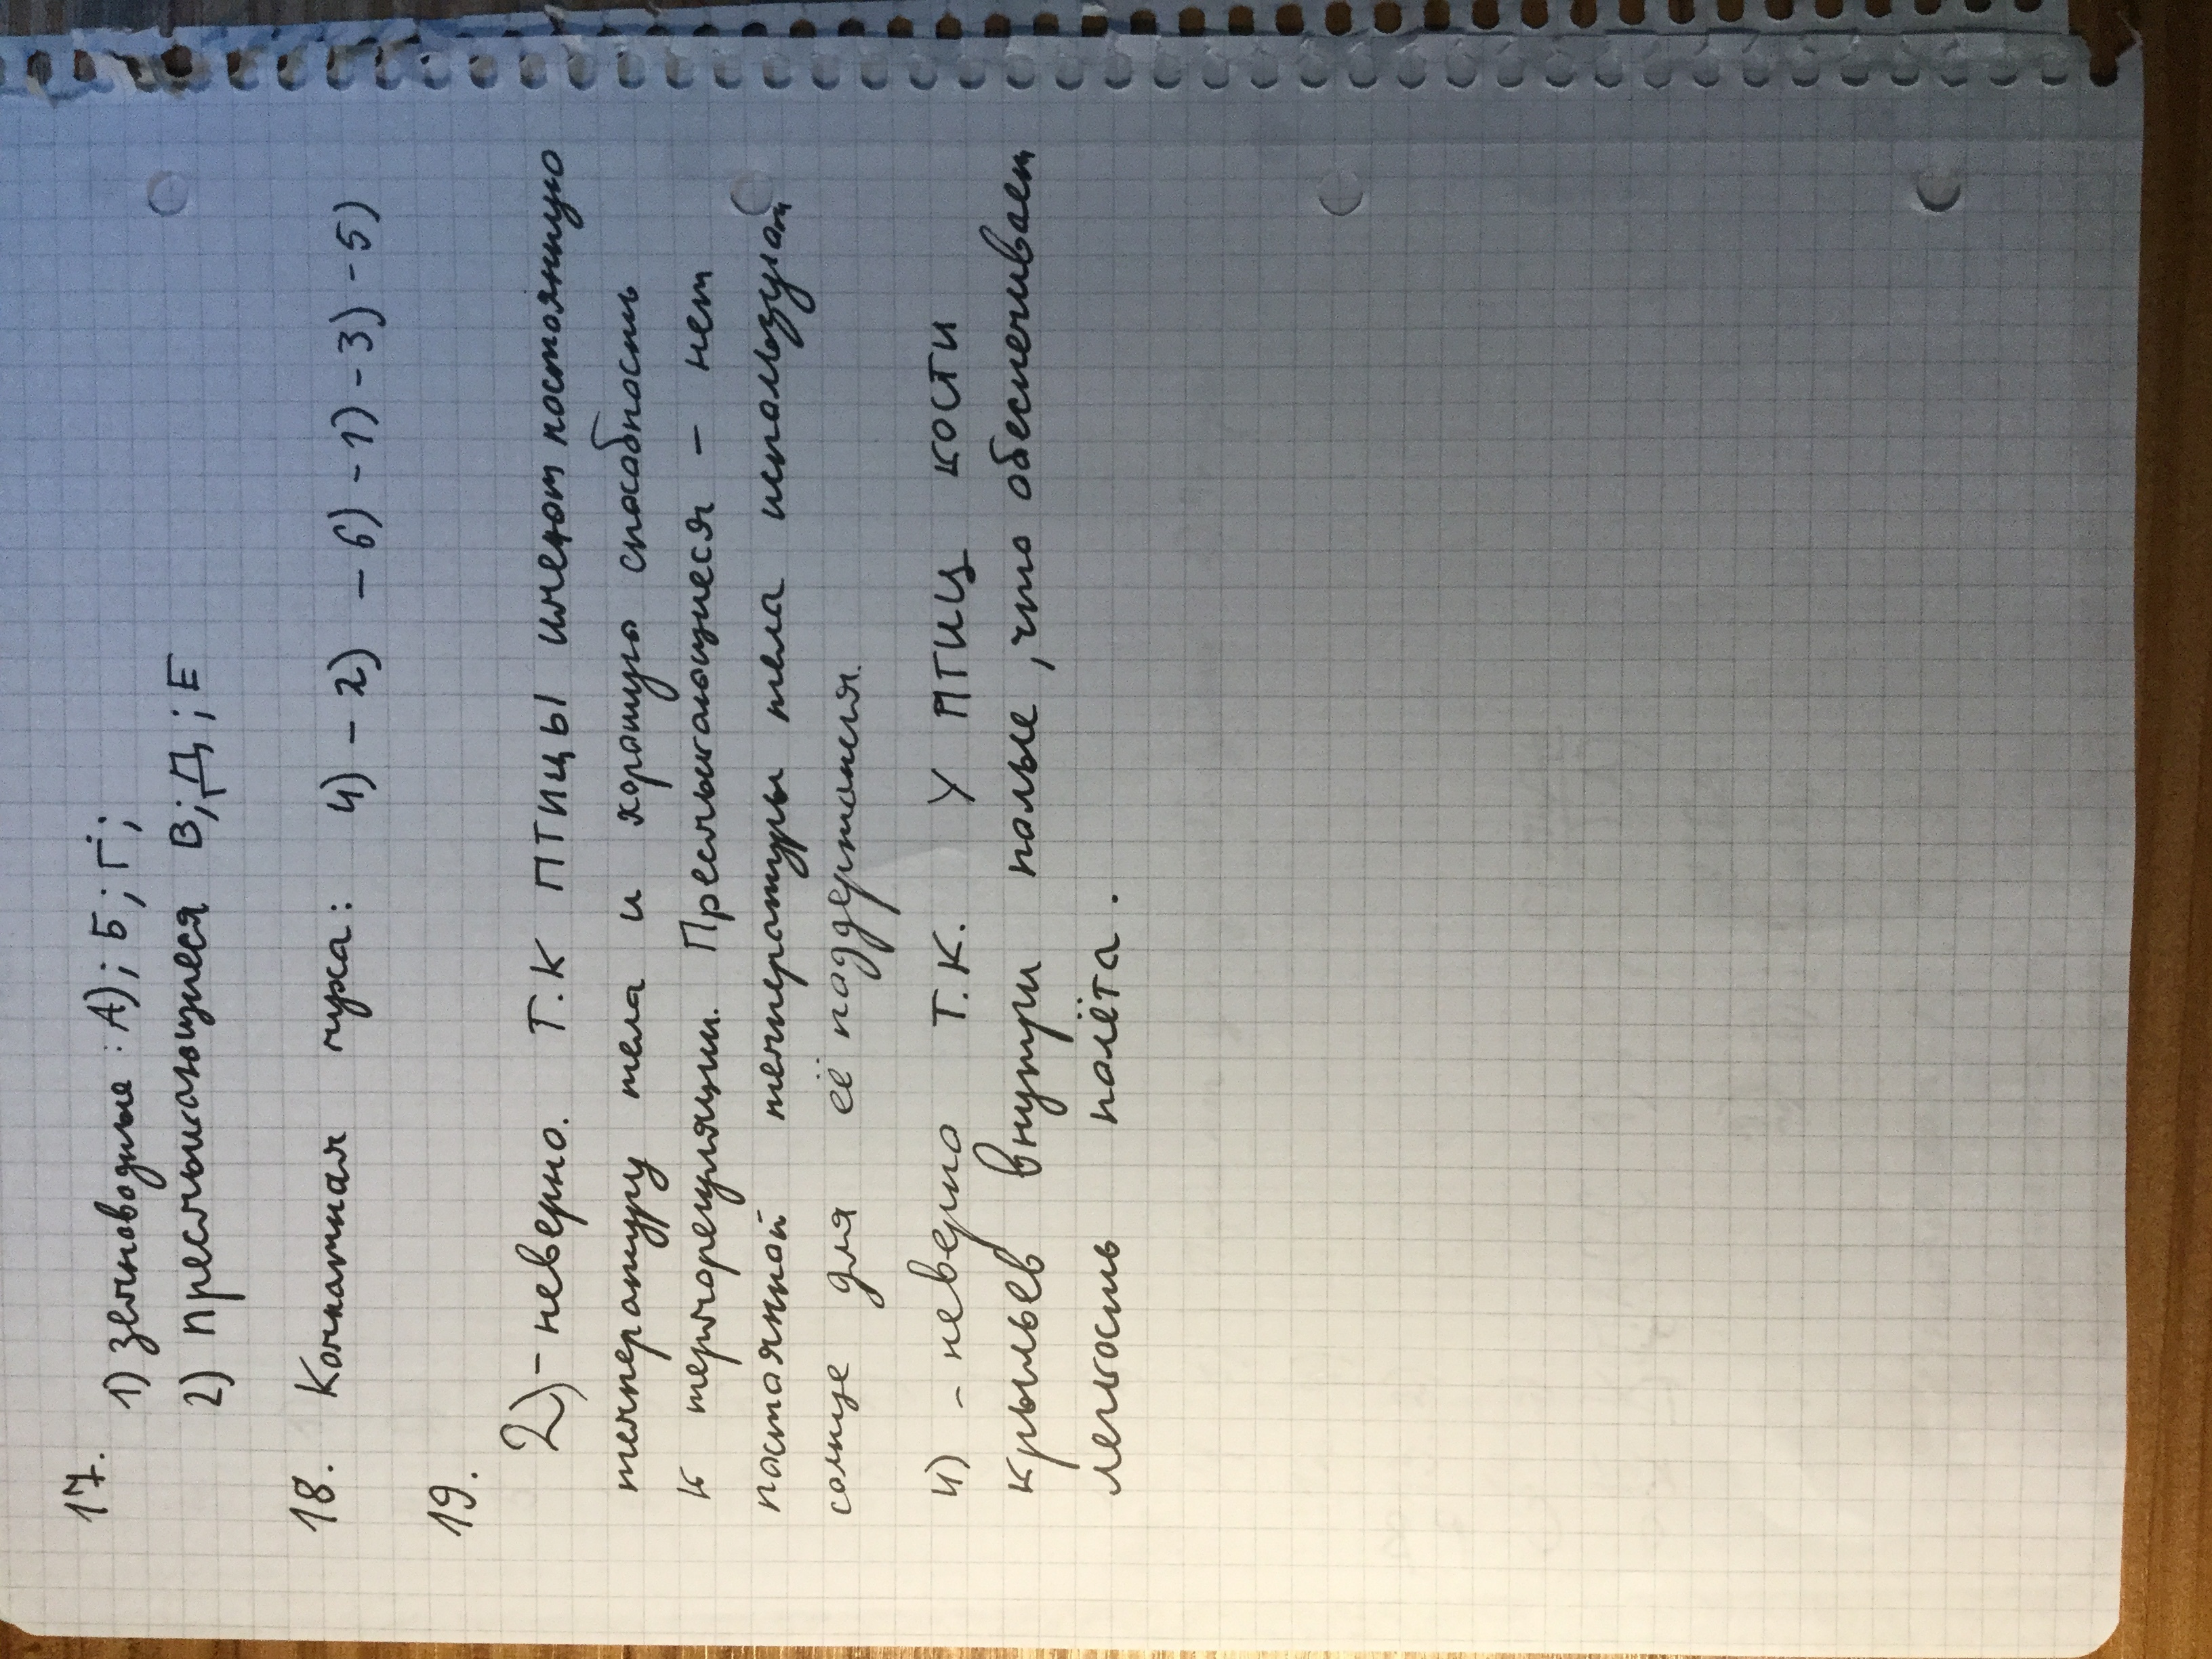 17.
1) земноводные: А); Б; Г;
2) пресмыкающиеся В; Д; Е
18. Комнатная муха: 4) – 2) – 6) – 1) – 3) – 5)
19.
2) – неверно. Т.К ПТИЦЫ имеют постоянную
температуру тела и хорошую способность
к терморегуляции. Пресмыкающиеся – нет
постоянной температуры тела используют
солнце для её поддержания.
4) – неверно Т.К. У ПТИЦ КОСТИ
крыльев внутри полые, что обеспечивает
легкость полёта.